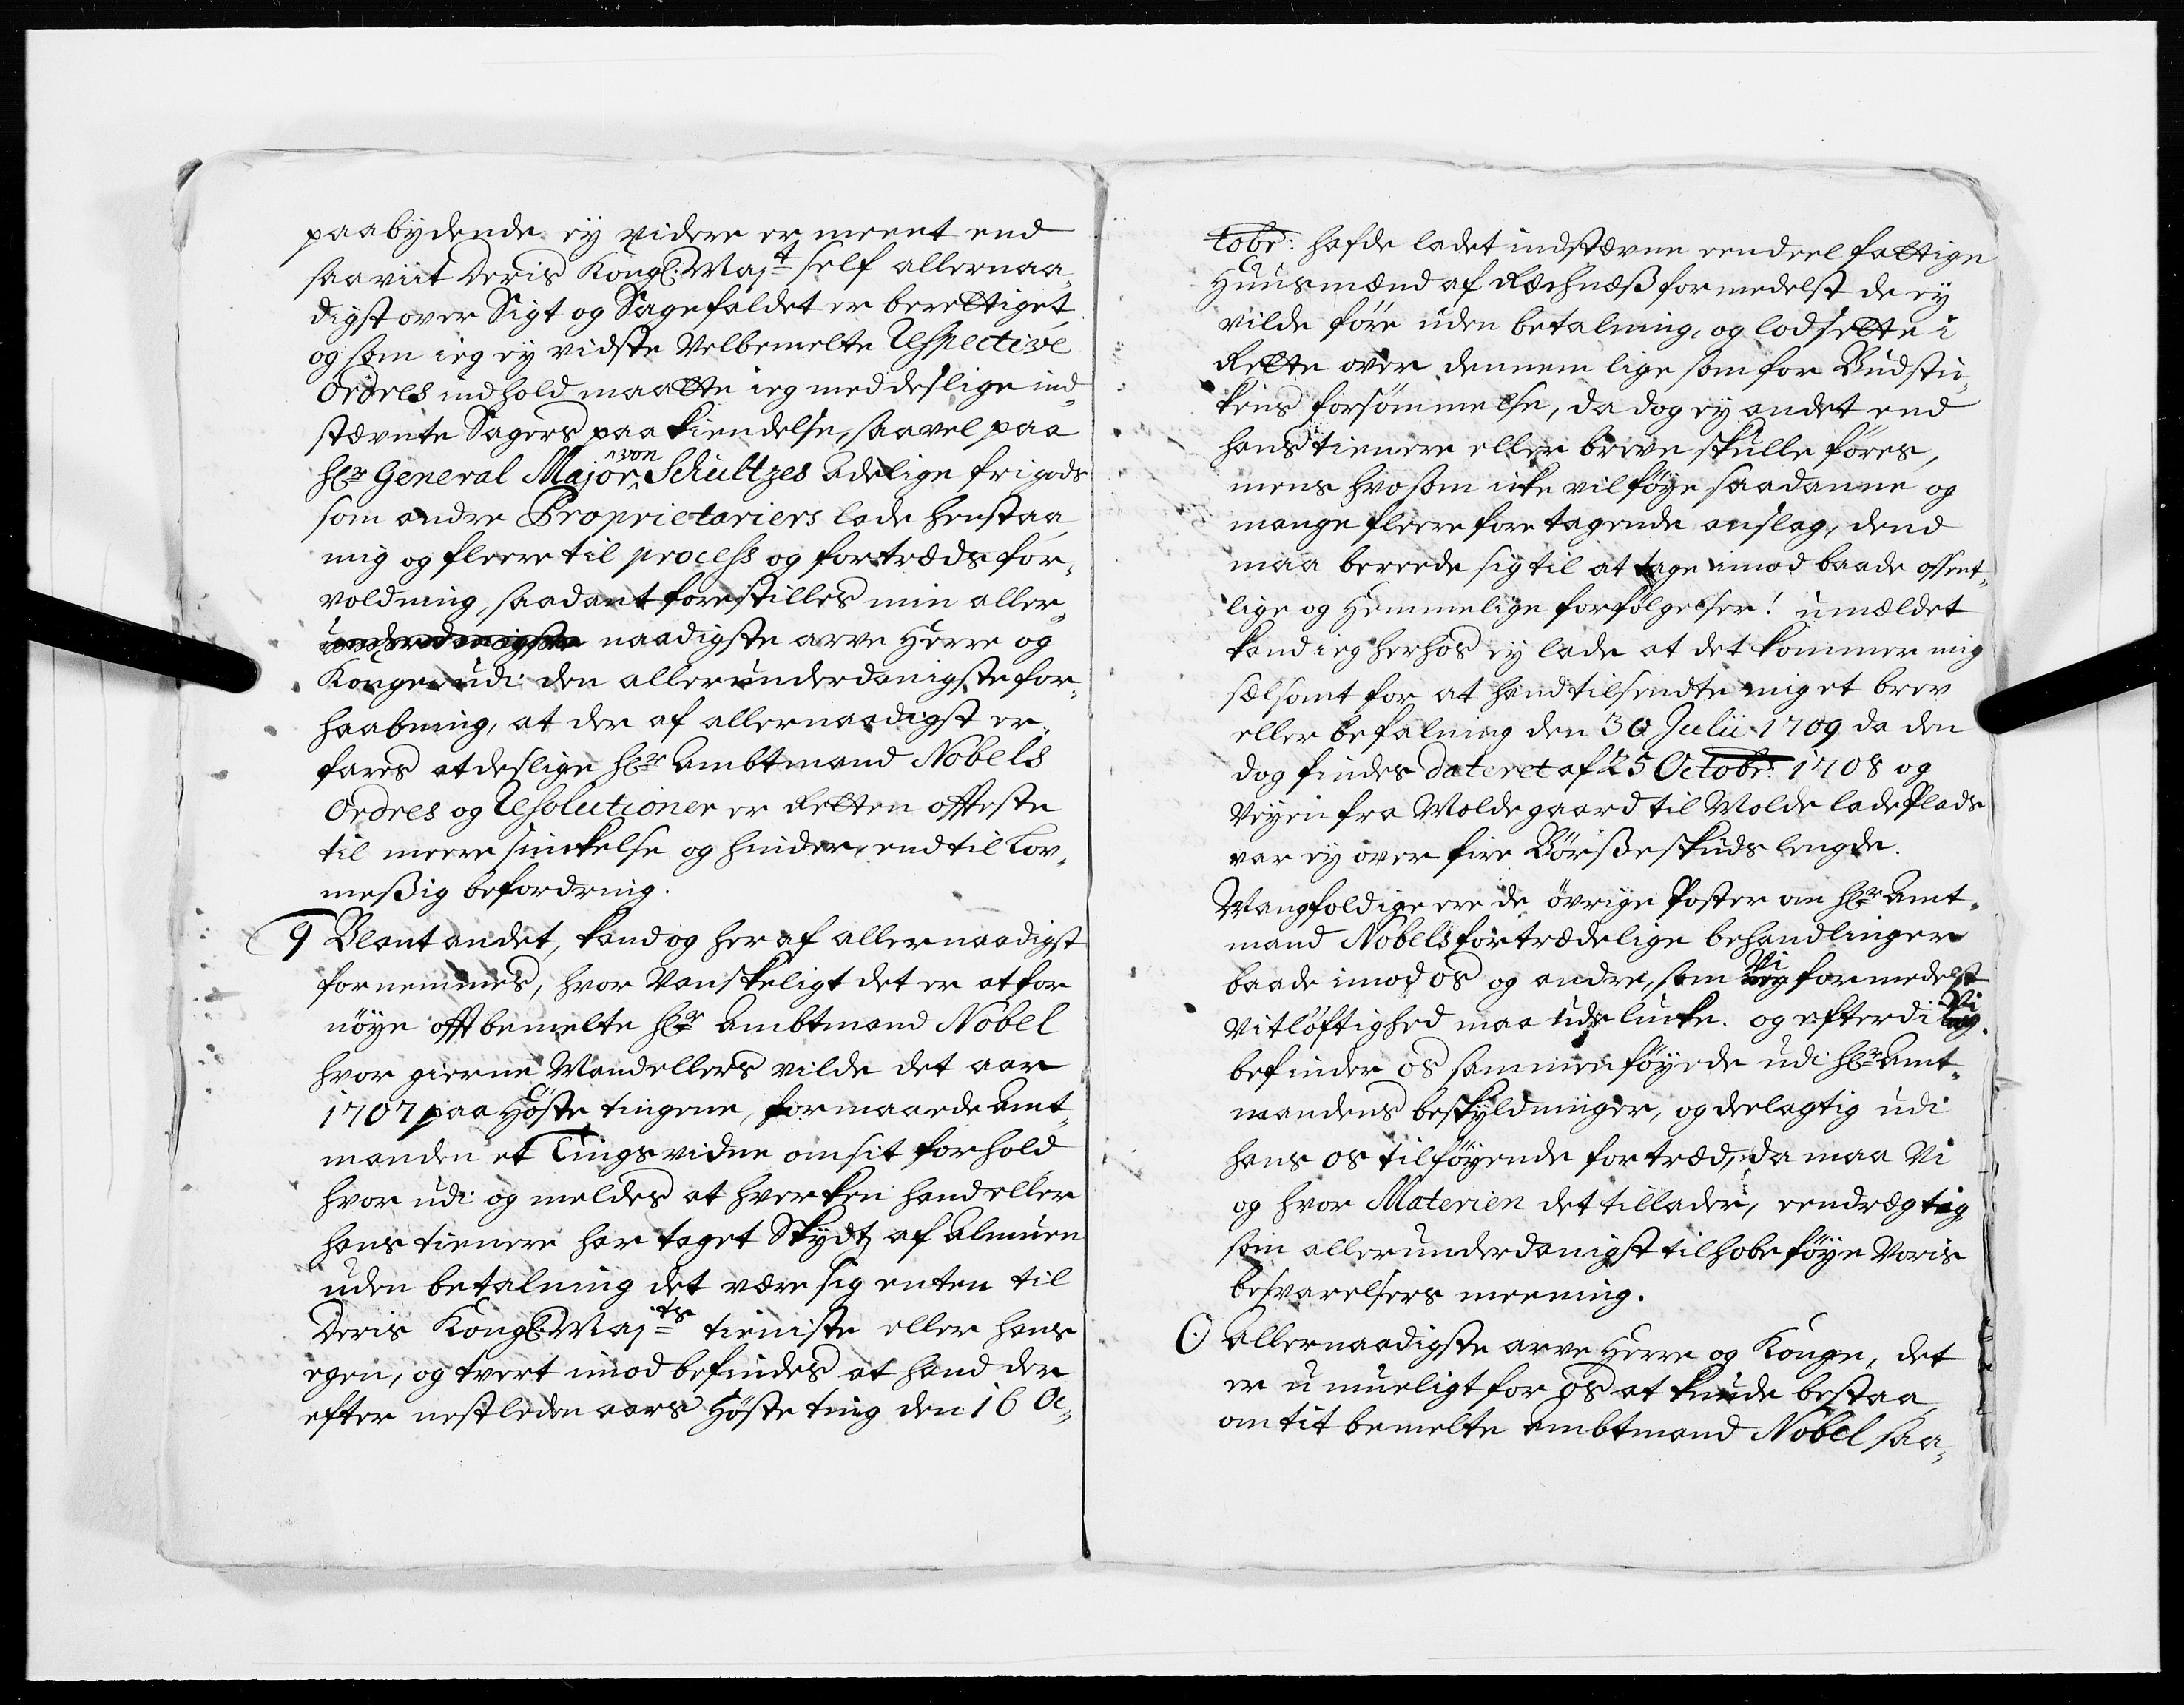 paabydende ey videre er meent end
saaviit Deris Kongl: Maj:t self allernaa¬
digst over Sigt og Sagefaldet er berettiget,
og som ieg ey vidste Velbemelte Respective
Ordres indhold maatte ieg med deslige ind¬
stævnte Sagers paakiendelse, saavel paa
Hr General Major von Schultzes adelige frigods
som andre Proprietariers lade henstaa,
mig og fleere til process og fortræds for¬
voldning, saadant forestilles min aller¬
underdanigste naadigste arve Herre og
Konge udi den allerunderdanigste for¬
haabning, at der af allernaadigst er¬
fares at deslige Hr Ambtmand Nobels
Ordres og Resolutioner er Retten offteste
til meere sinckelse og hinder, end til Lov¬
meßig befordring.
9 Blant andet, kand og her af allernaadigst
fornemmes, hvor Vanskeligt det er at for
nöye offtbemelte Hr Ambtmand Nobel
hvor gierne Mandellers vilde det aar
1707 paa Höste tingene, formaaede Amt¬
manden et Tingsvidne om sit forhold
hvor udi og meldes at hverken hand eller
hans tienere har taget Skydt af Almuen
uden betalning det være sig enten til
Deris Kongl: Maj:ts tieniste eller hans
egen, og tvert imod befindes at hand der
efter nestleden aars Höste ting den 16 Oc¬
tobr: hafde ladet indstævne eendeel fattige
Huusmænd af Rechnæß formedelst de ey
vilde före uden betalning, og lod sette i
Rette over dennem lige som for Budsti¬
kens forsömmelse, da dog ey andet end
hans tienere eller breve skulle föres,
mens hvo som icke vil föye saadanne og
mange fleere fore tagende anslag, dend
maa bereede sig til at tage imod baade offent¬
lige og Hemmelige forfölgelser! umældet
kand ieg herhos ey lade at det kommer mig
sælsomt for at hand tilsendte mig et brev
eller befalning den 30 Julii 1709 da den
dog findes dateret af 25 Octobr: 1708 og
Veyen fra Moldegaard til Molde ladePlads
var ey over fire Börßeskuds lengde.
Mangfoldige ere de övrige Poster om Hr Amt¬
mand Nobels fortrædelige behandlinger
baade imod os og andre, som Vi formedelst
Vitlöftighed maa udelucke. og efterdi Vi
befinder os sammenföyede udi Hr Amt¬
mandens beskyldninger, og deelagtig udi
hans os tilföyende fortræd, da maa Vi
og hvor Materien det tillader, eendrægtig
som allerunderdanigst tilhobe föye Voris
besvarelsers meening.
Allernaadigste arve Herre og Konge, det
er umueligt for os at kunde bestaa,
om tit bemelte Ambtmand Nobel saa¬